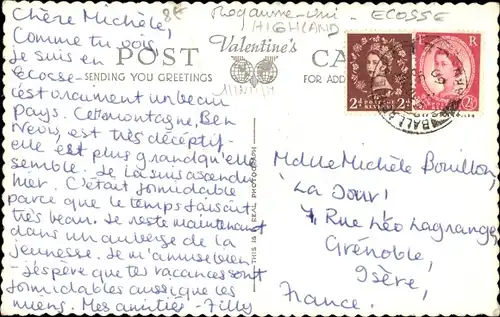 8€ Royaume-Uni - ECOSSE
HIGHLAND
Chère Michèle,
Comme tu vois,
Je suis en
Ecosse-
c'est vraiment un beau
Pays. Cette montagne, Ben
Nevis, est très déceptif-
elle est plus grand qu'elle
semble. Je la suis ascendu
hier. C'était formidable
parce que le temps faisait
très beau. Je reste maintenant
dans un auberge de la
jeunesse. Je m'amuse bien
-j'espère que tes vacances sont
formidables aussi que les
miens. Mes amitiés - Jilly
POST Valentine's CA
SENDING YOU GREETINGS FOR ADD
THIS IS A REAL PHOTOGRAPH
POSTAGE
2d 2d
E R
2½
BALLA
Mdlle Michèle Bouillon,
"La Jour"
7, Rue Léo Lagrange,
Grénoble,
Isère,
France.